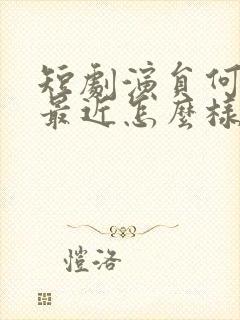 短劇演員何
最近怎麼樣
愷洛